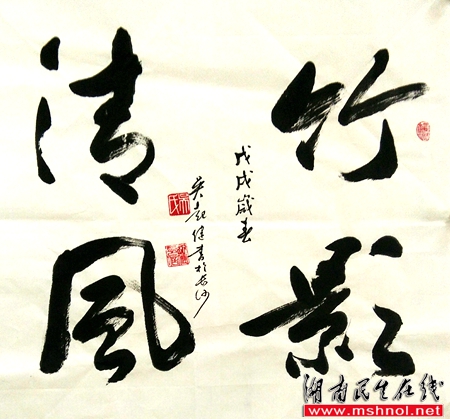 竹影
清風
戊戌歲春
吴书於长沙
湖南民生在线
www.mshnol.net